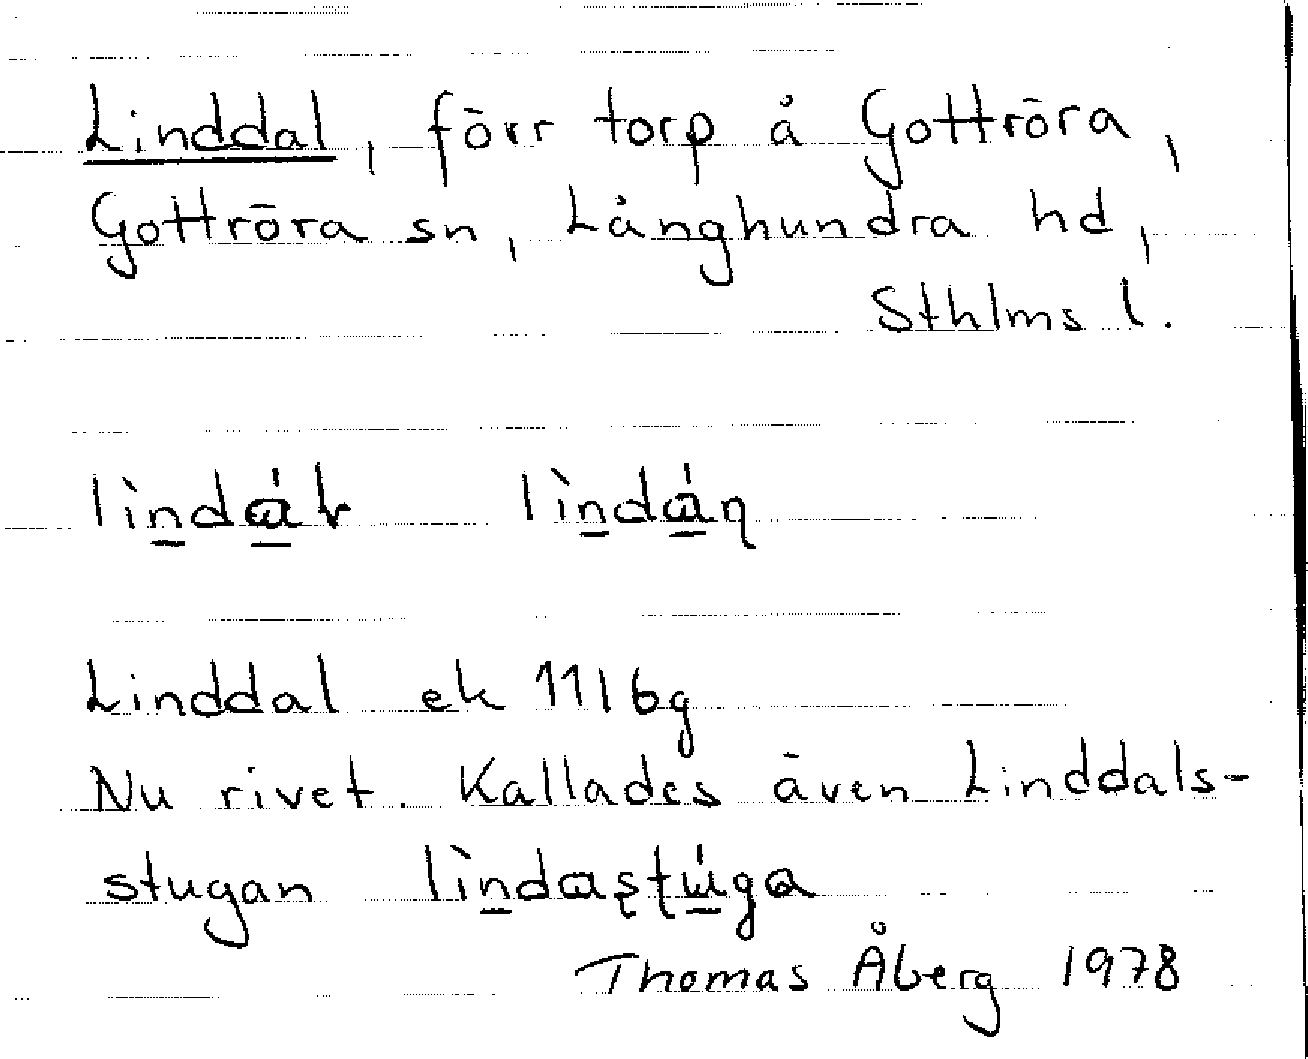 Linddal, förr torp å Gottröra,
Gottröra sn, Långhundra hd,
Sthlms l.
Linddal ek 11I6g
Nu rivet. Kallades även Linddals-
stugan
Thomas Åberg 1978